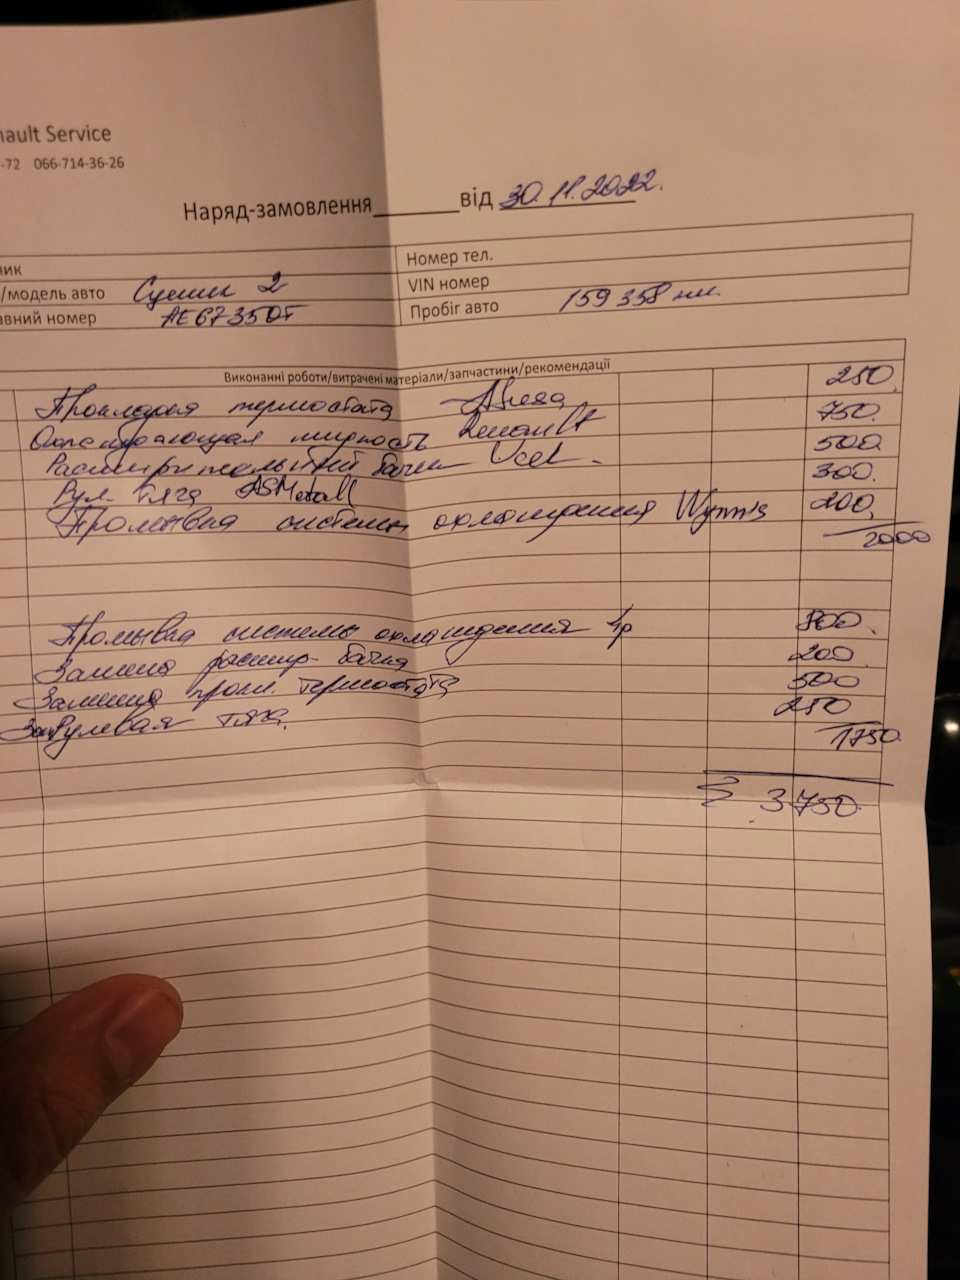 nault Service
-72 066-714-36-26
Наряд-замовлення______від 30.11.2022.
ник
Номер тел.
/модель авто Сценик 2
VIN номер
авний номер АЕ6735ОТ
Пробіг авто 159 358 км.
Виконанні роботи/витрачені матеріали/запчастини/рекомендації
Прокладка термостата 250.
Охлаждающая жидкость Renault 750.
Расширительный бачек Ucel. 500
Рул. тяга ASMetall 300.
Промывка системы охлаждения Wynn's 200,
2000
Промывка системы охлаждения 1р 800.
Замена расшир бачка 200.
Замена прокл. термостата 500
Зам Рулевая тяга. 250
1750.
3750.